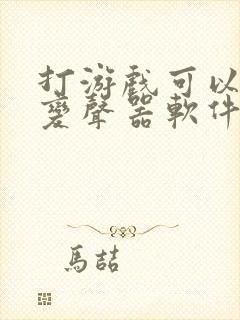 打游戲可以
變聲器軟件
馬喆